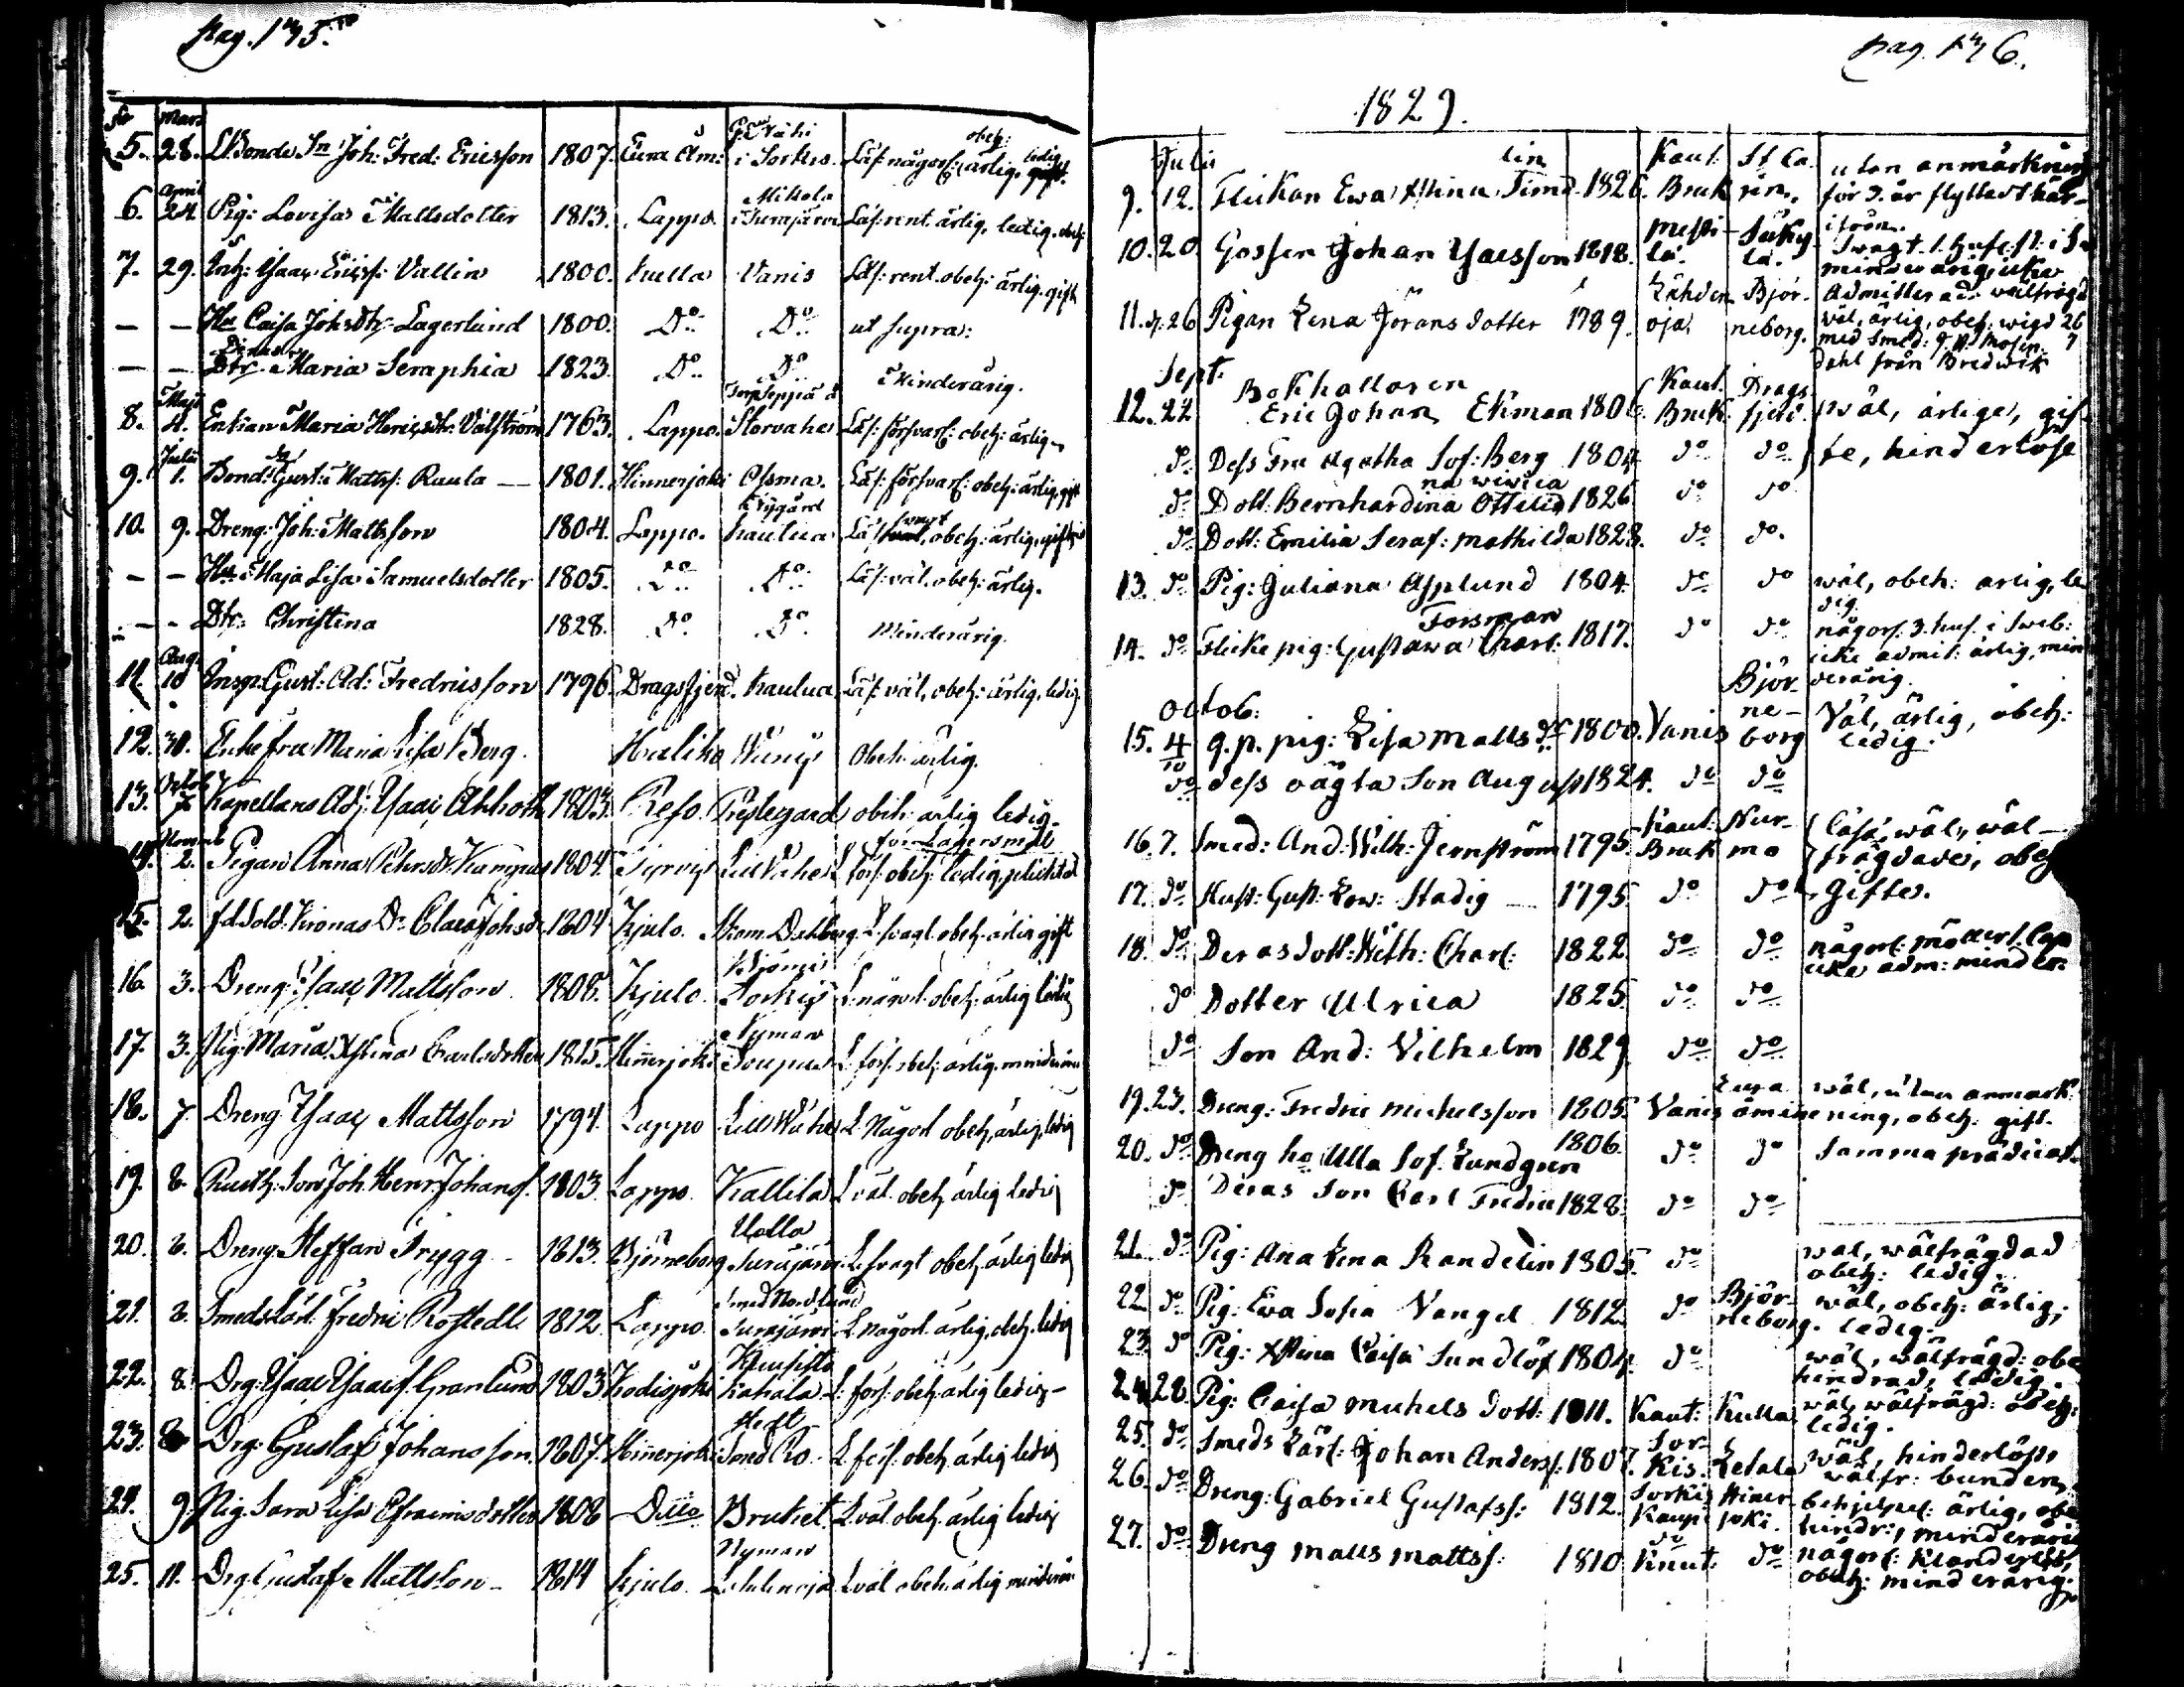 pag. 175.
No Mars
5. 28. Bonde Sn Joh: Fred: Ericsson 1807. Eura Åm: i Sorkis. Läs: någorl: ärlig, obeh: ledig
April
6. 24 Pig: Lovisa Mattsdotter 1813. Lappo. Mikola i Turajärvi Läs: rent. ärlig, ledig. obeh:
7. 29. Inh: Isaac Ericss: Vallin 1800. Kulla Vanis Läs: rent. obeh: ärlig. gift
— — Hu Caisa Johsdtr Lagerlund 1800. Do Do ut supra:
— — Dtr Maria Seraphia 1823. Do Do Minderårig.
Maji
8. 4. Enkan Maria Henricsdtr. Valström 1763. Lappo. Storvaha Läs: försvarl: obeh: ärlig
Julii
9. 1. Bond: Gust: Mattss: Raula — 1801. Hinnerjoki Assma. Läs: försvarl: obeh: ärlig. gift
10. 9. Dreng: Joh: Mattsson 1804. Lappo. Nygård Kautua Läs: svagt, obeh: ärlig. gift
— — Hu Maja Lisa Samuelsdotter 1805. Do Do Läs: väl. obeh: ärlig.
— — Dtr Christina 1828. Do Do Minderårig.
Aug.
11. 10 Insp: Gust: Ad: Fredriksson 1796. Dragsfjerd. Kautua. Läs: väl, obeh: ärlig, ledig
12. 30. Enkefru Maria Lisa Berg. Haliko Obeh: ärlig.
Octob.
13. 7. Kapellans Adj: Isaac Ahlroth 1803. Reso. Prestegård obeh: ärlig ledig.
Novemb
14. 2. Pigan Anna Pehrsdr. Kumpus 1804. Tyrvis Lill Vaha L. förs: obeh: ledig, plicktad för Lägersmål
15. 2. fd Sold: Kronas Dr Claes Johsdr 1804 Kjulo. Skom. Dahlberg. L. svagt. obeh: ärlig gift
16. 3. Dreng: Isaac Mattsson 1808. Kjulo. Sorkis L. någorl. obeh: ärlig ledig
17. 3. Pig: Maria Xstina Carlsdotter 1815. Hinnerjoki Nyman Soupas L. förs: obeh: ärlig. minderårig
18. 7. Dreng Isaac Mattsson 1794. Lappo Lill Vaha L. Någorl obeh, ärlig, ledig
19. 8. Rusth: Son Joh. Henr. Johanss. 1803. Lappo. Kallila L väl. obeh, ärlig ledig
20. 8. Dreng Steffan Trygg — 1813. Björneborg Uolla Turajärvi L. svagt obeh, ärlig ledig
21. 8. Smeds Lärl. Fredric Rostedt 1812. Lappo. Smed Nordlund Turajärvi L. Någorl. ärlig, obeh. ledig
22. 8. Drg: Isaac Isaacss. Granlund 1803 Kodisjoki Kuusisto Kahala L: förs: obeh: ärlig ledig —
23. 8 Drg: Gustaf Johansson 1807. Hinnerjoki Smed Rostedt L. förs. obeh, ärlig ledig
24. 9. Pig. Sara Lisa Efraimsdotter 1808 Ditto Bruket. L. väl obeh. ärlig ledig
25. 11. Drg Gustaf Mattsson — 1814 Kjulo. Nyman L väl obeh: ärlig minderår:
pag. 176.
1829.
Julii
9. 12. Flickan Ewa Stina Timelin 1826. Kaut: Bruk utan anmärkning för 3. år flyttadt härifrån.
10. 20. Gossen Johan Jacsson 1818. Messilä. Säkylä. minderårig, icke Admitterad: wälfrägd
11. 26 Pigan Lena Jörans dotter 1789. Lähdenoja Björneborg. väl, ärlig, obeh: wigd 26 med Smed: Mosendahl från Bredwik
Sept.
12. 22 Bokhallaren Eric Johan Ekman 1806. Kaut. Bruk. Dragsfjerd. wäl, ärlige, gifte, hinderlöse
do Dess Fru Agatha Sof: Berg 1804. do do
do Dott. Bernhardina Ottilia 1826 do do
do Dott: Emilia Seraf: Mathilda 1828. do do.
13. do Pig: Juliana Asplund 1804. do do wäl, obeh: ärlig, ledig.
14. do Flicke pig: Gustawa Charl: Forsman 1817. do do någorl. 3. huf. i Sweb: icke admit: ärlig, minderårig.
Octob:
15. 4/10 q.p. pig: Lisa Matts dr 1800. Vanis Björneborg Väl, ärlig, obeh: ledig.
do dess oägta Son August 1824. do do
16. 7. Smed: And: Wilh: Jernström 1795. Kaut: Bruk Nurmo läsa, wäl, wälfrägdade, obeh
17. do Hust: Gust: Low: Stadig — 1795 do do Giftes.
18. do Deras dott: Wilh: Charl: 1822. do do någorl: icke adm: minder:
do Dotter Ulrica 1825 do do
do Son And: Vilhelm 1829 do do
19. 23. Dreng: Fredric Michelsson 1805. Vanis Eura åminne wäl, utan anmärkning, obeh: gift.
20. do Dreng hu Ulla Sof. Lundgren 1806. do do Samma prädicat.
do Deras Son Carl Fredric 1828. do do
21. do Pig: Ana Lena Randelin 1805. do wäl, wälfrägdad obeh: ledig.
22 do Pig: Ewa Sofia Vangel 1812. do Björneborg. wäl, obeh: ärlig, ledig.
23. do Pig: Xstina Caisa Sundlöf 1804. do wäl, wälfrägd: obehindrad, ledig.
24. 28. Pig: Caisa Michels dott: 1811. Kaut: Kulla wäl, wälfrägd: obeh: ledig.
25. do Smeds Lärl: Johan Anderss: 1807. Sorkis. Letala wäl, hinderlöst, wälfr: bunden,
26. do Dreng: Gabriel Gustafss: 1812. Sorkis Kaup Hinerjoki. behjelpel: ärlig, obehindr:, minderårig
27. do Dreng Matts Mattss: 1810 do Knut: do någorl: Klanderlöst, obeh: minderårig.